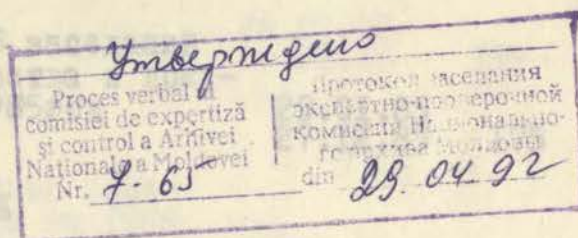 Утверждено
Proces verbal al
comisiei de expertiză
și control a Arhivei
Naționale a Moldovei
Nr. 7-65
Протокол заседания
экспертно-проверочной
комиссии Национально-
го архива Молдовы
din 29.04.92